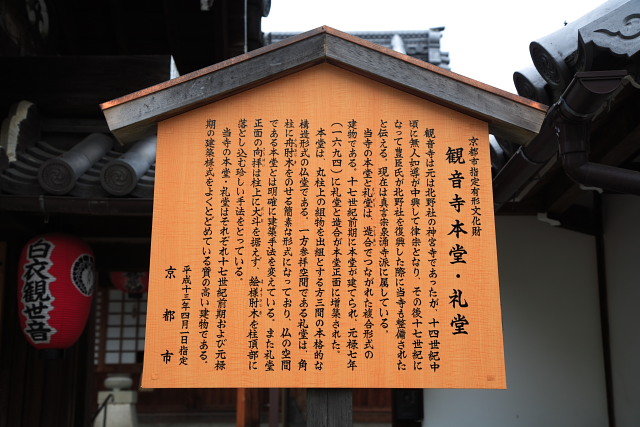 京都市指定有形文化財
観音寺本堂・礼堂
観音寺は元は北野社の神宮寺であったが、十四世紀中
頃に無人如導が中興して律宗となり、その後十七世紀に
なって豊臣氏が北野社を復興した際に当寺も整備された
と伝える。現在は真言宗泉涌寺派に属している。
当寺の本堂と礼堂は、造合でつながれた複合形式の
建物である。十七世紀前期に本堂が建てられ、元禄七年
(一六九四)に礼堂と造合が本堂正面に増築された。
本堂は、丸柱上の組物を出組とする方三間の本格的な
構造形式の仏堂である。一方参拝空間である礼堂は、角
柱に舟肘木をのせる簡素な形式になっており、仏の空間
である本堂とは明確に建築手法を変えている。また礼堂
正面の向拝は柱上に大斗を据えず、絵様肘木を柱頂部に
落とし込む珍しい手法をとっている。
当寺の本堂・礼堂はそれぞれ十七世紀前期および元禄
期の建築様式をよくとどめている質の高い建物である。
平成十三年四月一日指定
京都市
白衣観世音